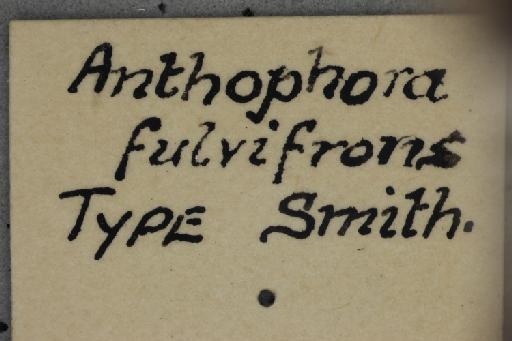 Anthophora
fulvifrons
TYPE Smith.